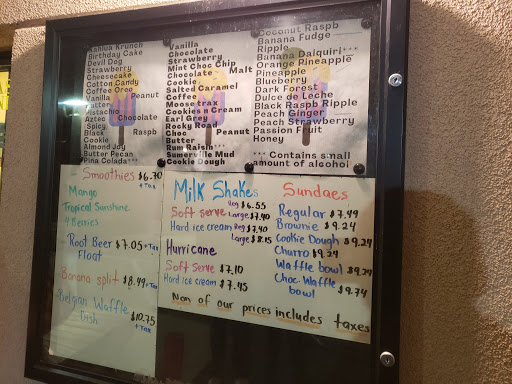 Kahlua Krunch
Birthday Cake
Devil Dog
Strawberry
Cheesecake
Cotton Candy
Coffee Oreo
Vanilla Peanut
Pistachio
Aztec Chocolate
Spicy
Black Raspb
Cookie
Almond Joy
Butter Pecan
Pina Colada***
Vanilla
Chocolate
Strawberry
Mint Choc Chip
Chocolate Malt
Cookie
Salted Caramel
Coffee
Moose trax
Cookies n Cream
Earl Grey
Rocky Road
Choc Peanut
Butter
Rum Raisin***
Somerville Mud
Cookie Dough
Coconut Raspb
Banana Fudge
Ripple
Banana Daiquiri***
Orange Pineapple
Pineapple
Blueberry
Dark Forest
Dulce de Leche
Black Raspb Ripple
Peach Ginger
Peach Strawberry
Passion Fruit
Honey
*** Contains small
amount of alcohol
Smoothies $6.70
+ Tax
Mango
Tropical Sunshine
4 Berries
Root Beer $7.05 + Tax
Float
Banana split $8.49 + Tax
Belgian Waffle
Dish $10.75
+ Tax
Milk Shakes
Reg $6.55
Soft serve Large $7.40
Hard ice cream Reg $7.40
Large $8.15
Hurricane
Soft Serve $7.10
Hard ice cream $7.45
Sundaes
Regular $7.49
Brownie $9.24
Cookie Dough $9.24
Churro $9.24
Waffle bowl $9.24
Choc. Waffle
bowl $9.74
Non of our prices includes taxes